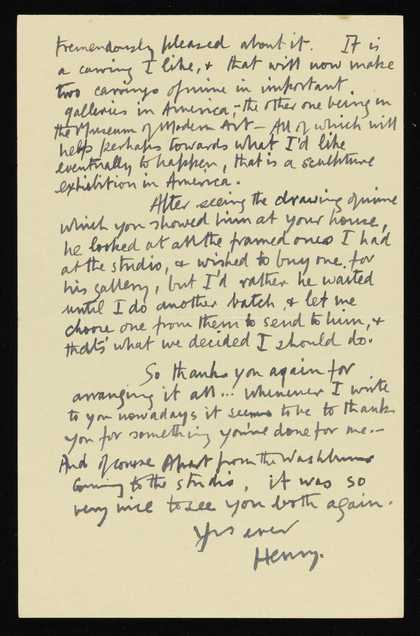 tremendously pleased about it. It is
a carving I like, & that will now make
two carvings of mine in important
galleries in America, - the other one being in
the Museum of Modern Art - All of which will
help perhaps towards what I'd like
eventually to happen, that is a sculpture
exhibition in America.
After seeing the drawing of mine
which you showed him at your house,
he looked at all the framed ones I had
at the studio, & wished to buy one for
his gallery, but I'd rather he waited
until I do another batch & let me
choose one from them to send to him, &
that's what we decided I should do.
So thank you again for
arranging it all... Whenever I write
to you nowadays it seems to be to thank
you for something you've done for me.-
And of course Apart from the Washburns
coming to the studio, it was so
very nice to see you both again.
Yrs ever
Henry.